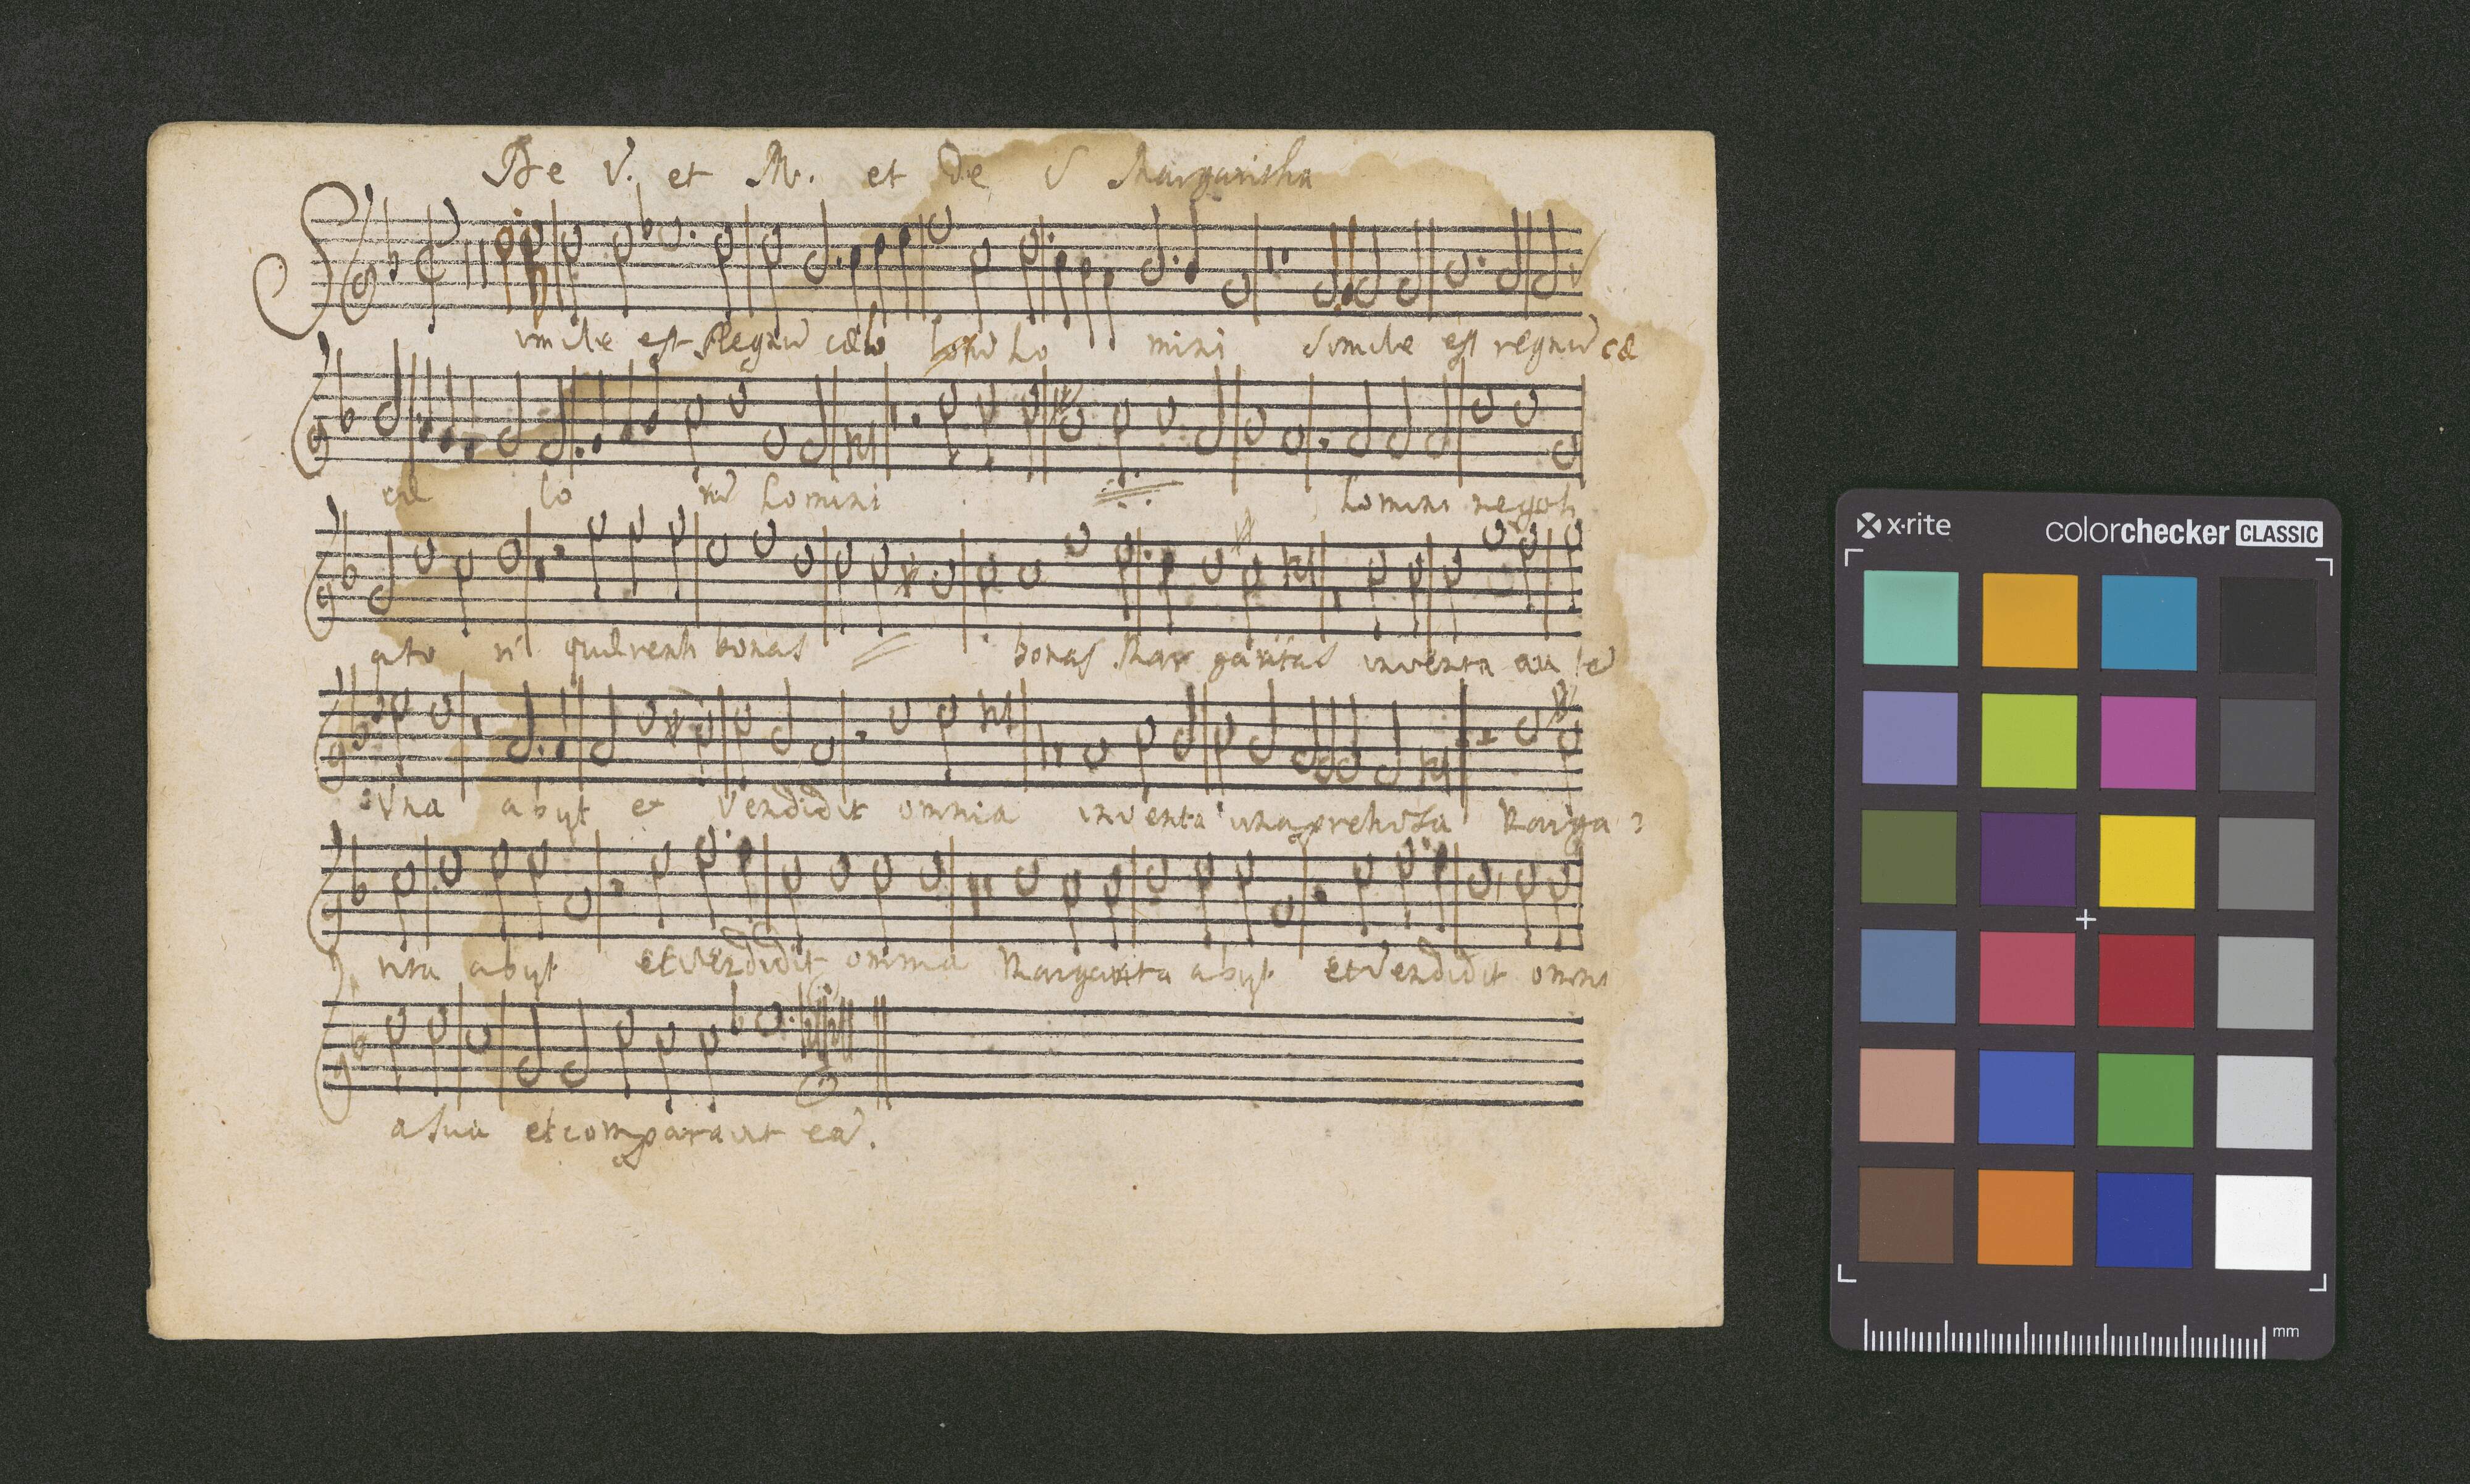 De V. et M. et De S Margaritha
Simile est Regnũ cælo lorũ ho mini Simile est regnũ cæ
cæ lo rũ homini homini negoti
ato ri quærenti bonas bonas Mar garitas inventa au tẽ
Una abyt et Vendidit omnia inventa una prehiosa Marga
rita abyt et vendidit omnia Margarita abyt et Vendidit omni
a sua et comparavit eã.
x·rite
colorchecker CLASSIC
mm